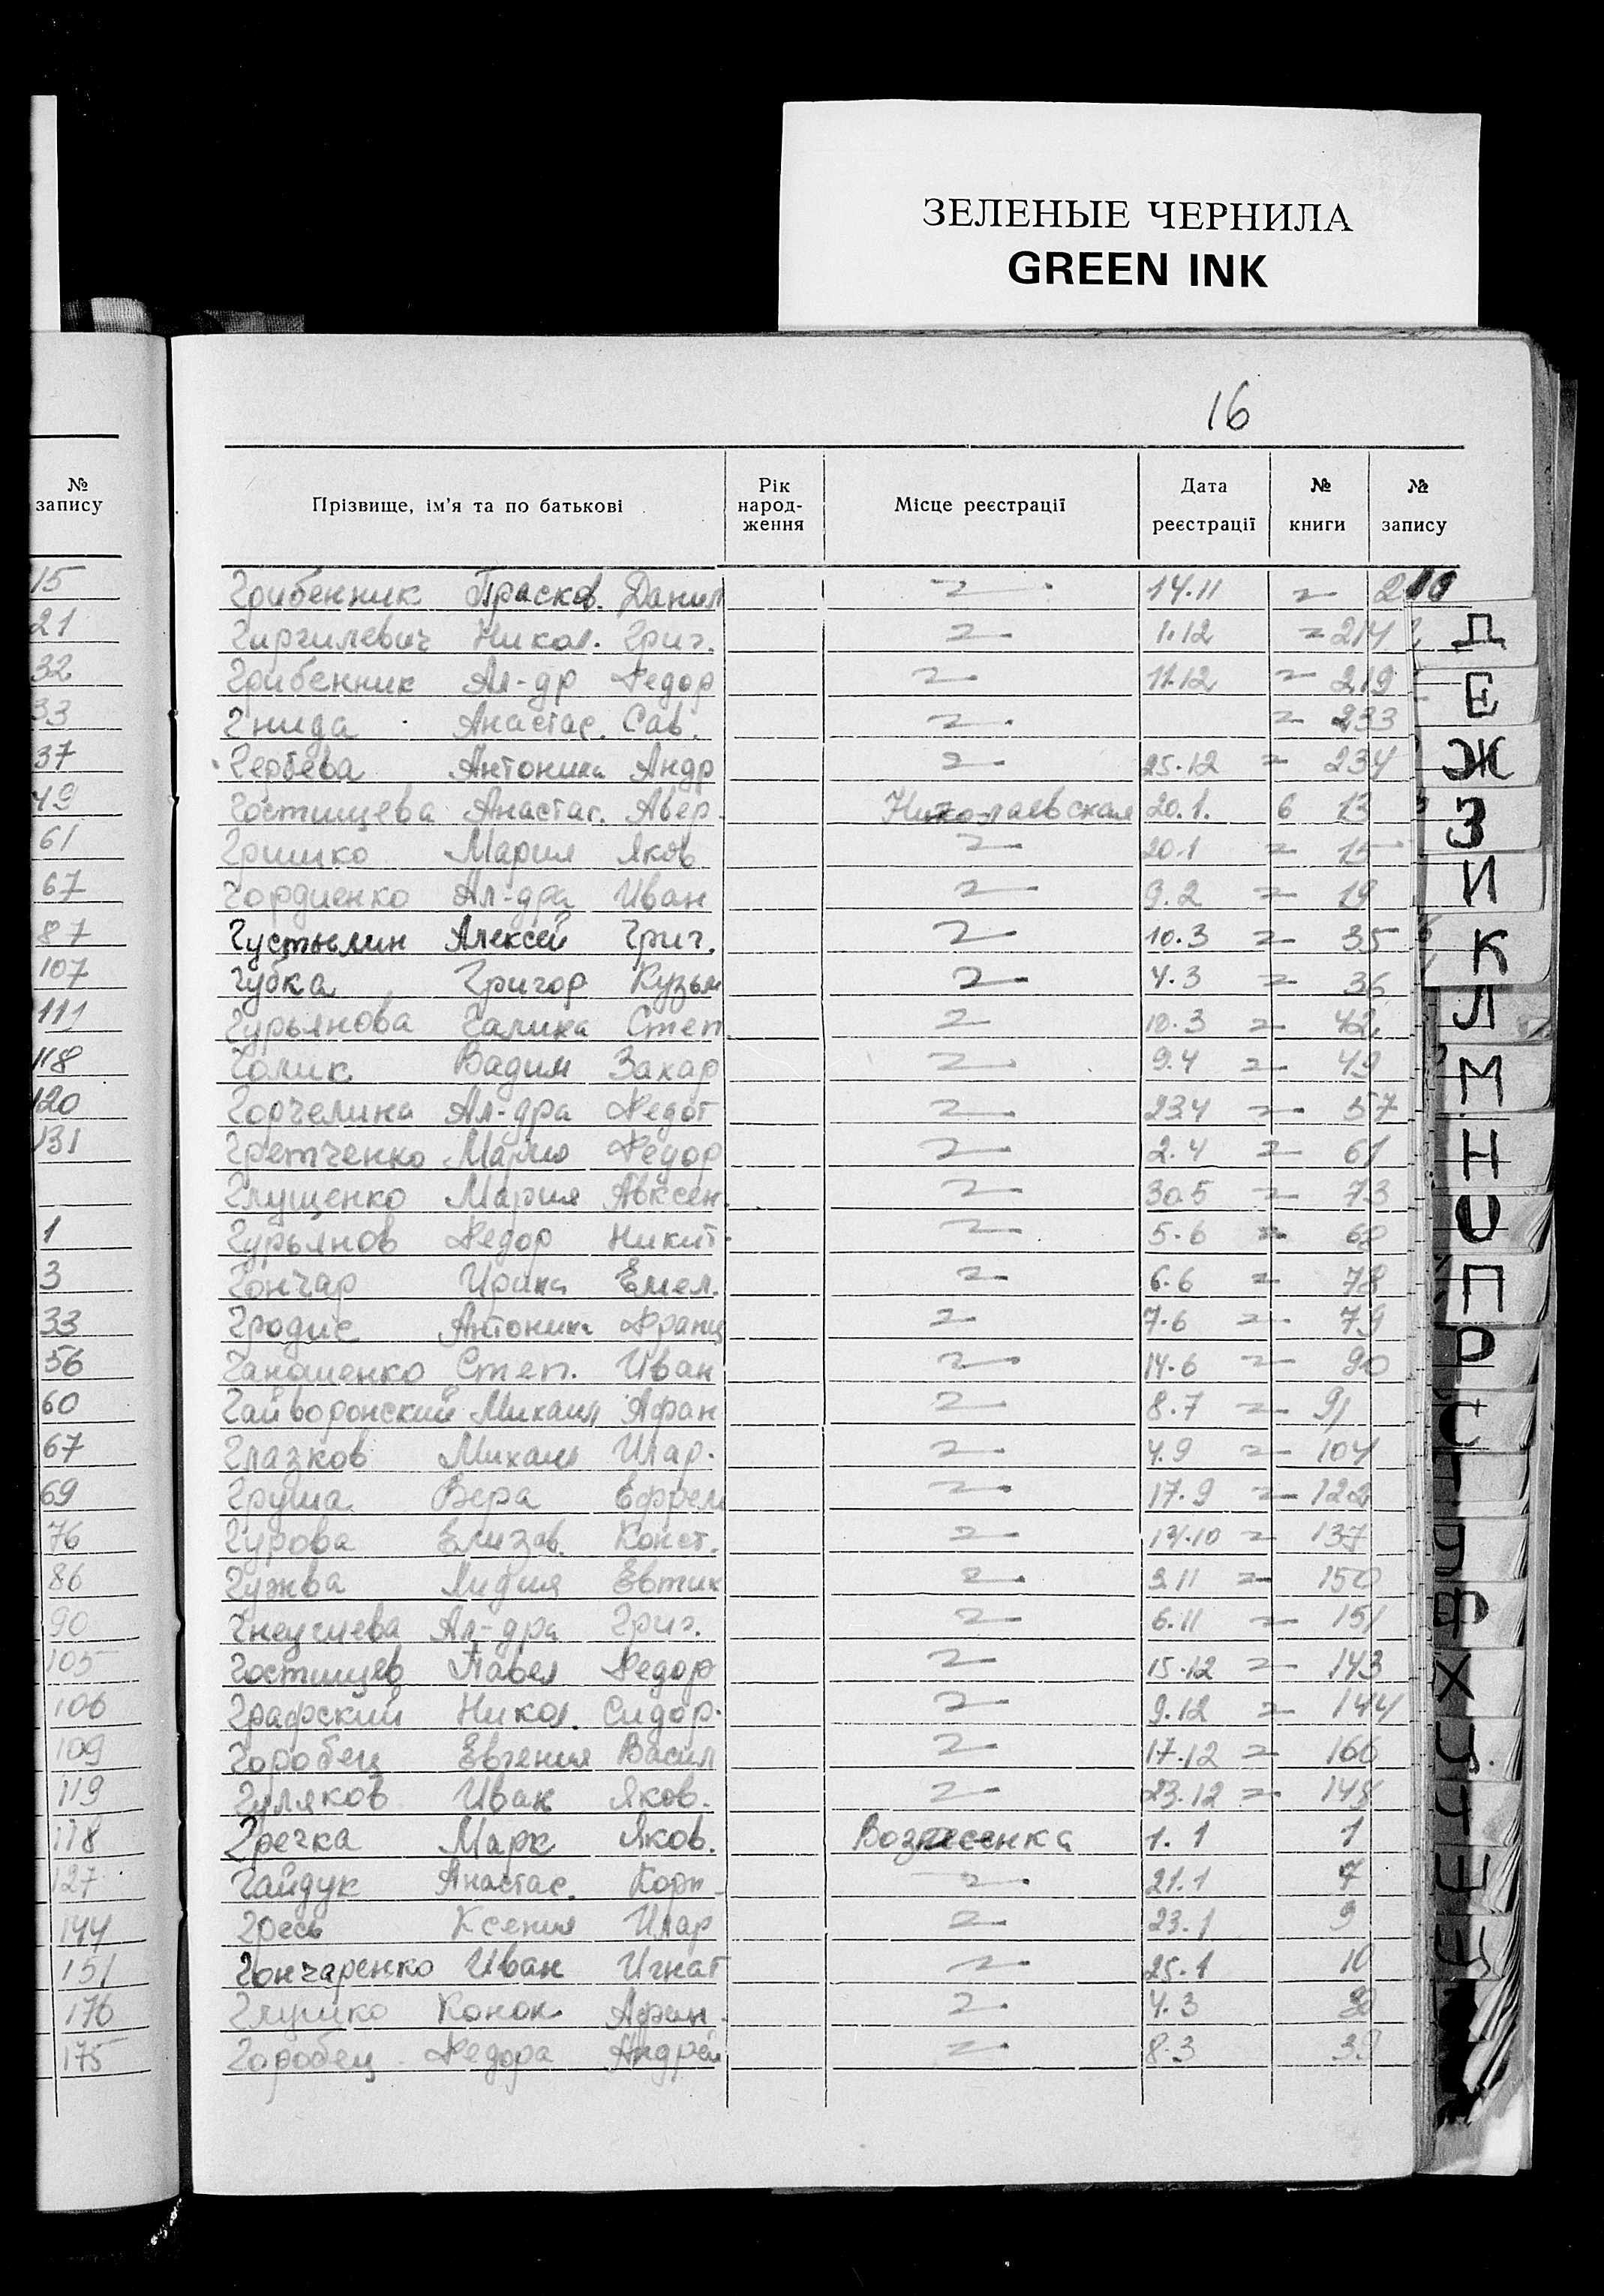 ЗЕЛЕНЫЕ ЧЕРНИЛА
GREEN INK
16
№ запису
15
21
32
33
37
49
61
67
87
107
111
118
120
131
1
3
33
56
60
67
69
76
86
90
105
106
109
119
118
127
144
151
176
175
Прізвище, ім'я та по батькові Рік народ-ження Місце реєстрації Дата реєстрації № книги № запису
Грибенник Прасков. Данил 14.11
Гиргилевич Никол. Григ. 1.12 214
Грибенник Ал-др Федор 11.12 219
Гнида Анастас. Сав. 233
Гербева Антонина Андр 25.12 234
Гостищева Анастас. Авер. Николаевская 20.1. 6 13
Гришко Мария Яков 20.1 15
Гордиенко Ал-дра Иван 9.2 19
Густылин Алексей Григ. 10.3 35
Губка Григор Кузьм 4.3 36
Гурьянова Галина Степ 10.3 42
Голик Вадим Захар 9.4 49
Горчелина Ал-дра Федот 23.4 57
Гретченко Мария Федор 2.4 61
Глущенко Мария Авксен. 30.5 73
Гурьянов Федор Никит. 5.6 68
Гончар Ирина Емел. 6.6 78
Гродис Антонина Франц 7.6 79
Ганошенко Степ. Иван 14.6 90
Гайворонский Михаил Афан 8.7 91
Глазков Михаил Илар. 4.9 104
Груша Вера Ефрем 17.9 122
Гурова Елизав. Конст. 14.10 137
Гужва Лидия Евтих 3.11 150
Гнеушева Ал-дра Григ. 6.11 151
Гостищев Павел Федор 15.12 143
Графский Никол. Сидор. 9.12 144
Горобец Евгения Васил 17.12 166
Гуляков Иван Яков. 23.12 148
Гречка Марк Яков. Вознесенка 1.1 1
Гайдук Анастас. Корн 21.1 7
Гресь Ксения Илар 23.1 9
Гончаренко Иван Игнат 25.1 10
Глушко Конон Афан. 4.3 30
Горобец Федора Андрей 8.3
Д
Е
Ж
З
И
К
Л
М
Н
О
П
Р
С
Т
У
Ф
Х
Ц